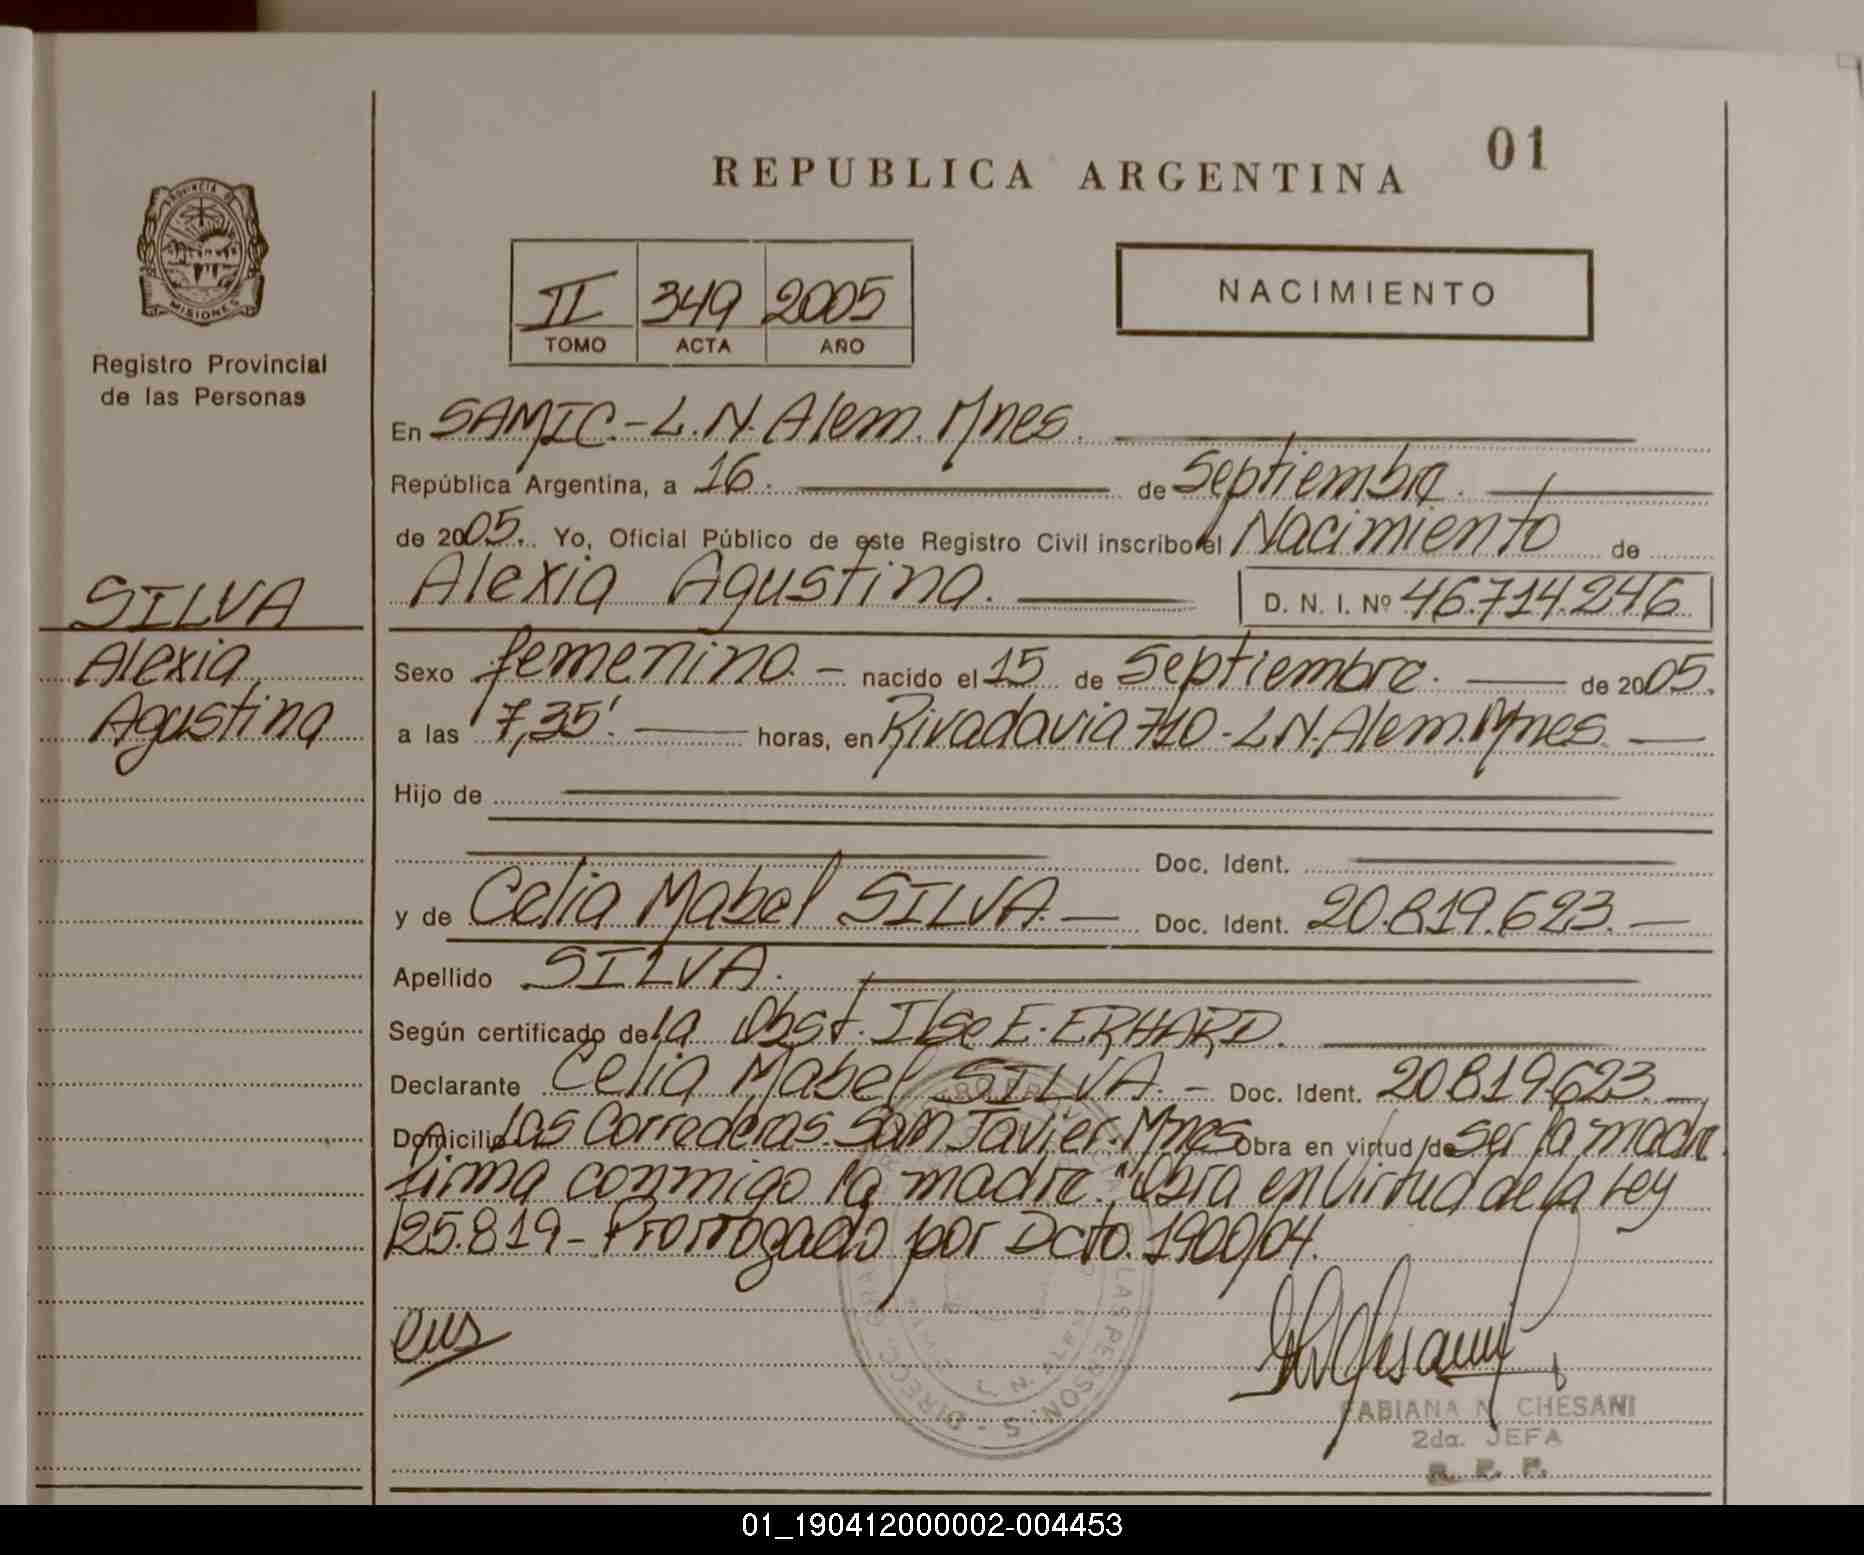 REPUBLICA ARGENTINA 01
PROVINCIA DE
MISIONES
Registro Provincial
de las Personas
II 349 2005
TOMO ACTA AÑO
NACIMIENTO
En SAMIC.-L.N.Alem.Mnes.
República Argentina, a 16. de Septiembre.
de 2005. Yo, Oficial Público de este Registro Civil inscribo el Nacimiento de
Alexia Agustina. D. N. I. Nº 46.714.246
SILVA
Alexia
Agustina
Sexo femenino.- nacido el 15 de Septiembre. de 2005.
a las 7,35'. horas, en Rivadavia 710-L.N.Alem.Mnes.
Hijo de
Doc. Ident.
y de Celia Mabel SILVA.- Doc. Ident. 20.819.623.-
Apellido SILVA.
Según certificado de la Obst. Ilse E. ERHARD.
Declarante Celia Mabel SILVA.- Doc. Ident. 20.819.623.-
Domicilio Las Correderas.San Javier.Mnes Obra en virtud de ser la madre
firma conmigo la madre."Obra en Virtud de la Ley
25.819-Prorrogado por Dcto.1900/04.
FABIANA N. CHESANI
2da. JEFA
R. P. P.
01_190412000002-004453